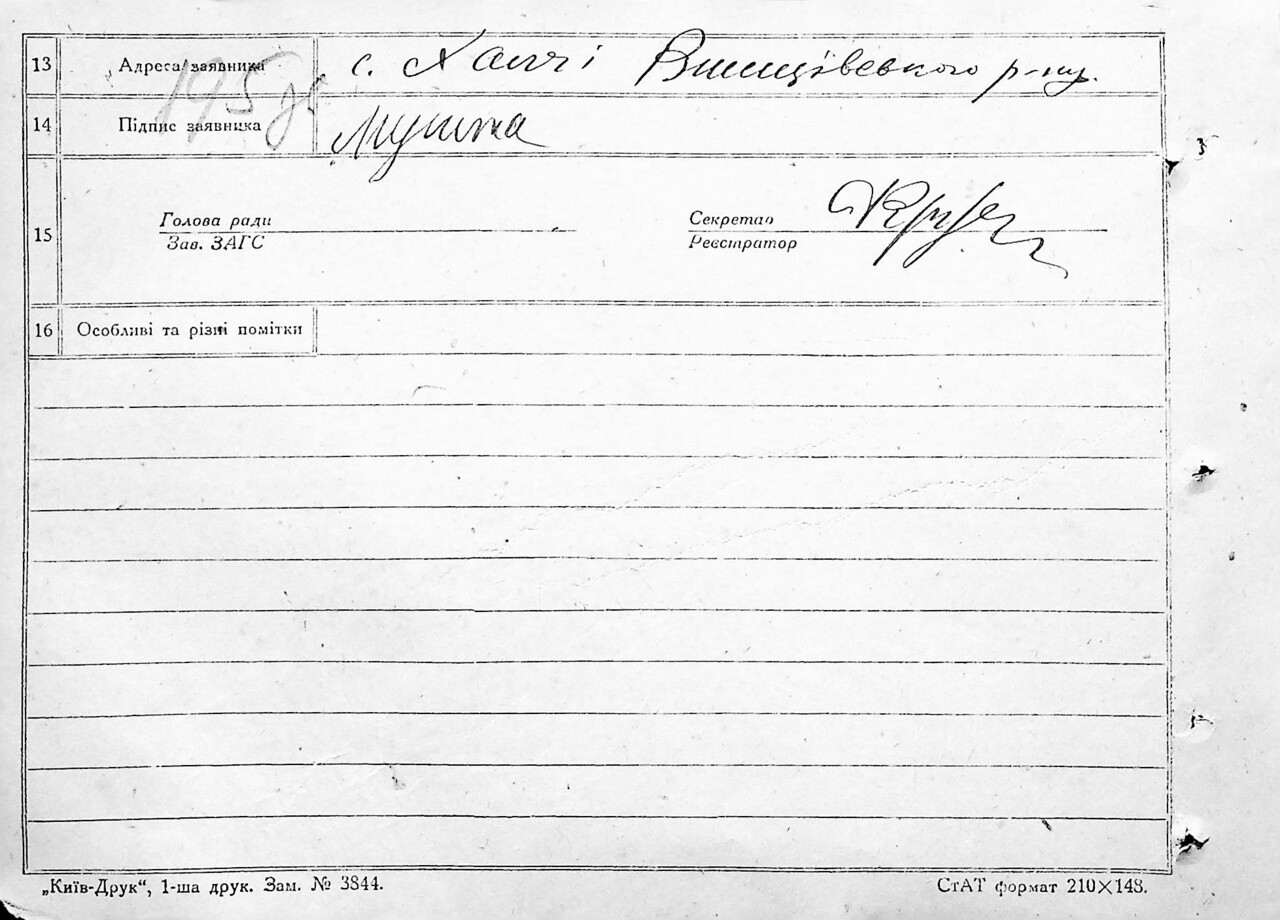 13 Адреса заявника с. Халчі р-ну.
14 Підпис заявника
Голова ради Секретар
15
Зав. ЗАГС Реєстратор
16 Особливі та різні помітки
„Київ-Друк“, 1-ша друк. Зам. № 3844. СтАТ формат 210×148.